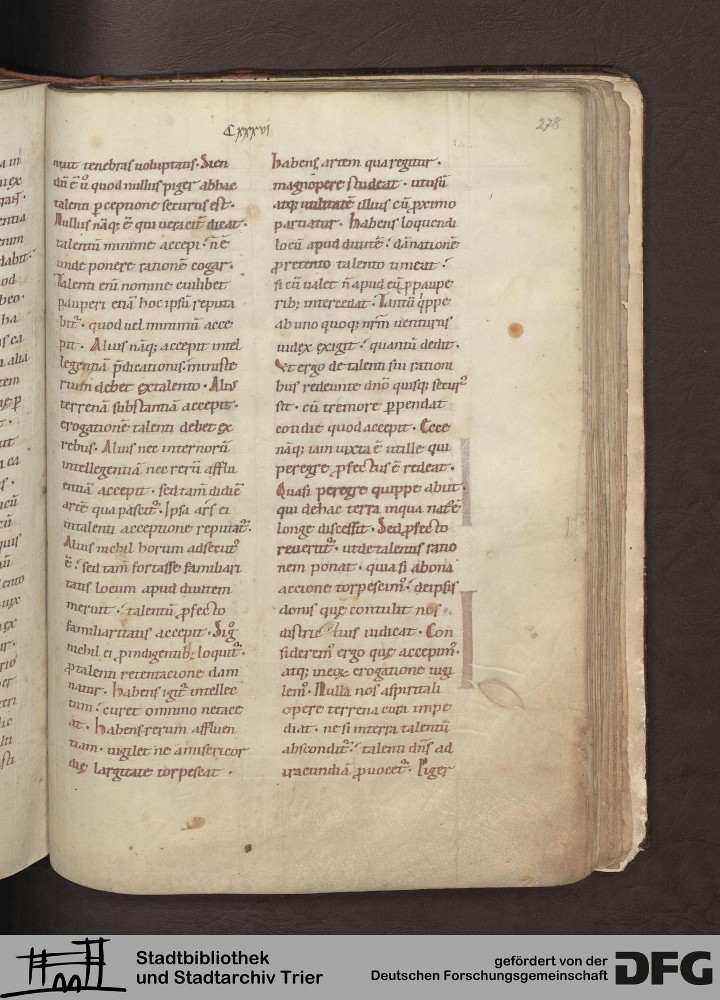 Cxxxvi
278
nuit tenebras uoluptatis. Scien
dū ē ū quod nullus piger ab hac
talenti pceptione securus est.
Nullus nāq; ē qui ueracit̄ dicat.
talentū minime accepi. n̄ ē
unde ponere rationē cogar.
Talenti enī nomine cuilibet
pauperi etiā hoc ipsū reputa
bit᷑. quod uel minimū acce
pit. Alius nāq; accepit intel
legentiā p̄dicationis. ministe
rium debet ex talento. Alius
terrenā substantiā accepit.
erogationē talenti debet ex
rebus. Alius nec internorū
intellegentiā nec rerū afflu
entiā accepit. sed tam̄ didic̄
artē qua pascit᷑. Ipsa ars ei
in talenti acceptione reputat᷑.
Alius nichil horum adsecut᷒
ē. sed tam̄ fortasse familiari
tatis locum apud diuitem
meruit. talentū pfecto
familiaritatis accepit. Si g̊
nichil ei p indigentib; loquit᷑.
p talenti retentacione dam
natur. habens igit᷑ intellec
tum. curet omnino ne tace
at. habens rerum affluen
tiam. uigilet ne a misericor
dię largitate torpescat.
habens artem qua regitur.
magnopere studeat. ut usū
atq; utilitatē illius cū pximo
partiatur. habens loquendi
locū apud diuitē. dānationē
p retento talento timeat.
si cū ualet n̄ apud eū p paupe
rib; intercedat. Tantū q̇ppe
ab uno quoq; nr̄m uenturus
iudex exigit. quantū dedit.
Vt ergo de talenti sui rationi
bus redeunte dn̄o quisq; secur᷒
sit. cū tremore ppendat
cotidie quod accepit. Ecce
nāq; iam iuxta ē ut ille qui
peregre pfectus ē redeat.
Quasi peregre quippe abiit.
qui de hac terra in qua nat᷒ ē
longe discessit. Sed pfecto
reuertit᷑. ut de talentis ratio
nem ponat. quia si a bona
accione torpescim᷒. de ipsis
donis quę contulit nos
districtius iudicat. Con
siderem᷒ ergo quę accepim᷒.
atq; in eoꝝ erogatione uigi
lem᷒. Nulla nos a spiritali
opere terrena cura impe
diat. ne si in terra talentū
abscondit᷑. talenti dn̄s ad
iracundiā puocet᷑. Piger
Stadtbibliothek
und Stadtarchiv Trier
gefördert von der
Deutschen Forschungsgemeinschaft
DFG